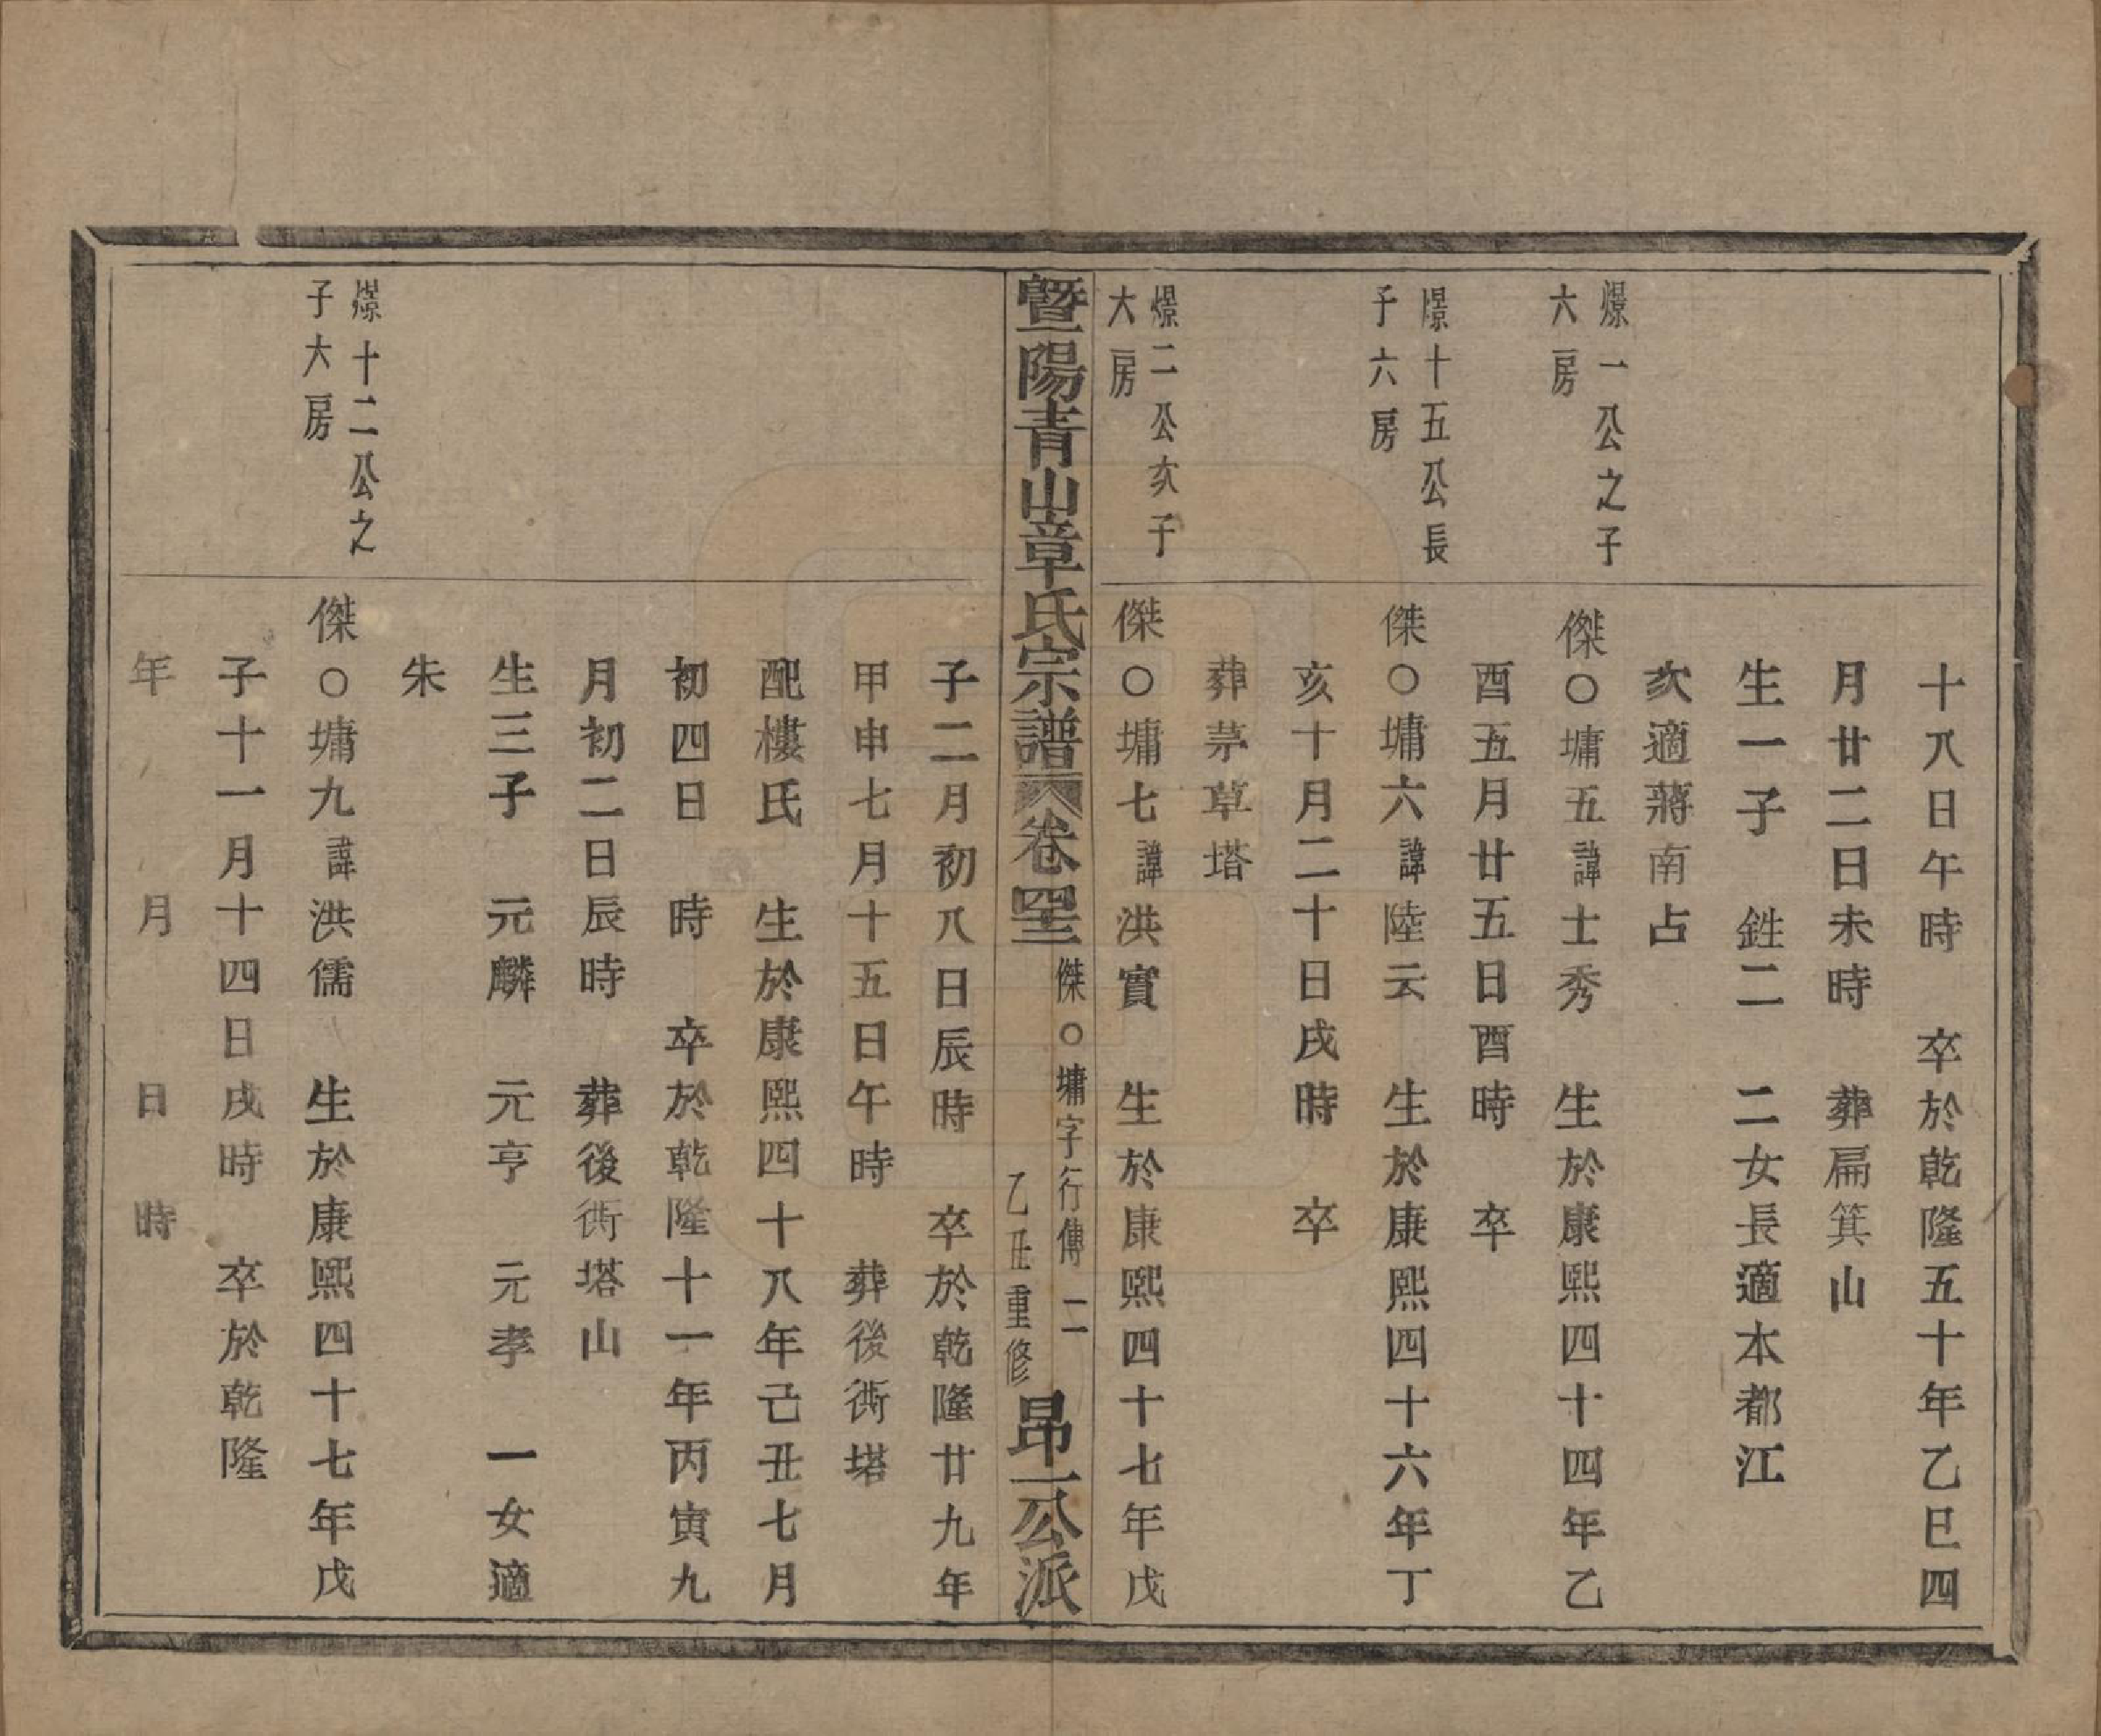 十八日午時　卒於乾隆五十年乙巳四
月廿二日未時　葬扁箕山
生一子　鉎二　二女長適本都江
次適蔣南占
爆一公之子
六房
傑〇墉五諱士秀　生於康熙四十四年乙
酉五月廿五日酉時　卒
十五公長
子六房
傑〇墉六諱陸云　生於康熙四十六年丁
亥十月二十日戌時　卒
葬茅草塔
二公次子
大房
傑〇墉七諱洪實　生於康熙四十七年戊
暨陽青山章氏宗譜　卷四三　傑〇墉字行傳　二　乙丑重修　昂一公派
子二月初八日辰時　卒於乾隆廿九年
甲申七月十五日午時　葬後衖塔
配樓氏　生於康熙四十八年己丑七月
初四日　時　卒於乾隆十一年丙寅九
月初二日辰時　葬後衖塔山
生三子　元麟　元亨　元孝　一女適
朱
十二公之
子大房
傑〇墉九諱洪儒　生於康熙四十七年戊
子十一月十四日戌時　卒於乾隆
年　月　日　時